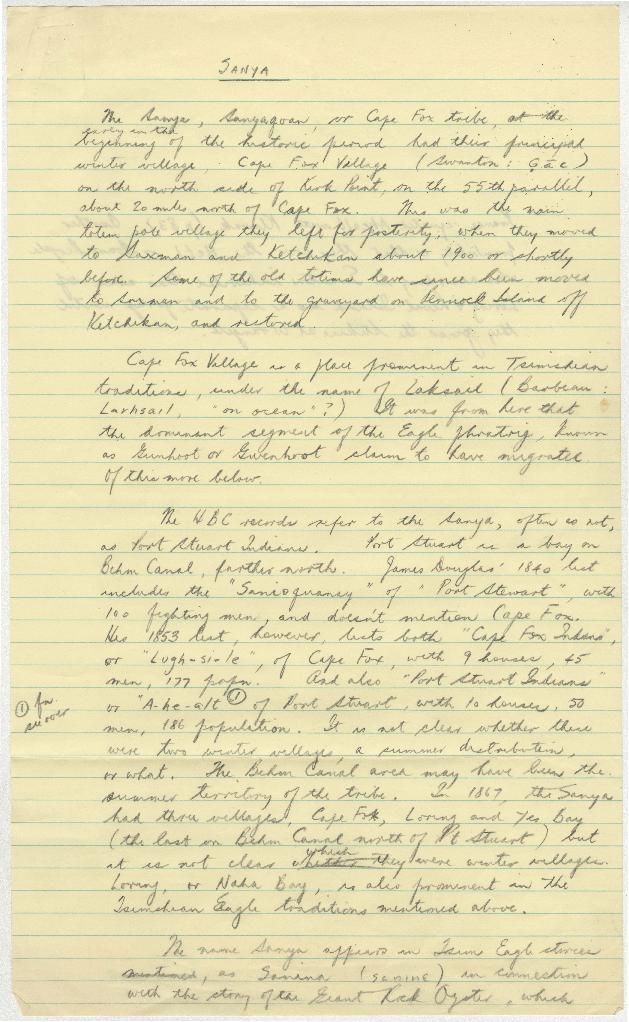 SANYA
The Sanya, Sanyaquan, or Cape Fox tribe, at the
early in the
beginning of the historic period had their principal
winter village, Cape Fox Village (Swanton: Gāc)
on the north side of Kirk Point, on the 55th parallel,
about 20 miles north of Cape Fox. This was the main
totem pole village they left for posterity, when they moved
to Saxman and Ketchikan about 1900 or shortly
before. Some of the old totems have since been moved
to Saxman and to the graveyard on Pennock Island off
Ketchikan, and restored.
Cape Fox Village is a place prominent in Tsimshian
traditions, under the name of Laksail (Barbeau:
Larhsail, "on ocean"?) It was from here that
the dominant segment of the Eagle phratry, known
as Gunhoot or Gwenhoot claim to have migrated.
Of this more below.
The HBC records refer to the Sanya, often as not,
as Port Stuart Indians. Port Stuart is a bay on
Behm Canal, farther north. James Douglas' 1840 list
includes the "Sanisquansy" of "Port Stewart", with
100 fighting men, and doesn't mention Cape Fox.
His 1853 list, however, lists both "Cape Fox Indians",
or "Lugh-si-le", of Cape Fox, with 9 houses, 45
men, 177 popn. And also "Port Stuart Indians"
① fn. see over
or "A-he-alt" ① of Port Stuart, with 10 houses, 50
men, 186 population. It is not clear whether these
were two winter villages, a summer distribution,
or what. The Behm Canal area may have been the
summer territory of the tribe. In 1867, the Sanya
had three villages, Cape Fox, Loring and Yes Bay
(the last on Behm Canal north of Pt Stuart) but
it is not clear whether which they were winter villages.
Loring, or Naha Bay, is also prominent in the
Tsimshian Eagle traditions mentioned above.
The name Sanya appears in Tsim Eagle stories
mentioned, as Sanina (SANINE) in connection
with the story of the Giant Rock Oyster, which